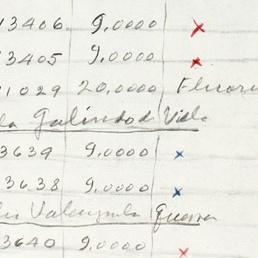 13406 9,0000 x
13405 9,0000 x
1029 20,0000
Galindo de Vida
3639 9,0000 x
3638 9,0000 x
Valenzuela Guerra
3640 9,0000 x